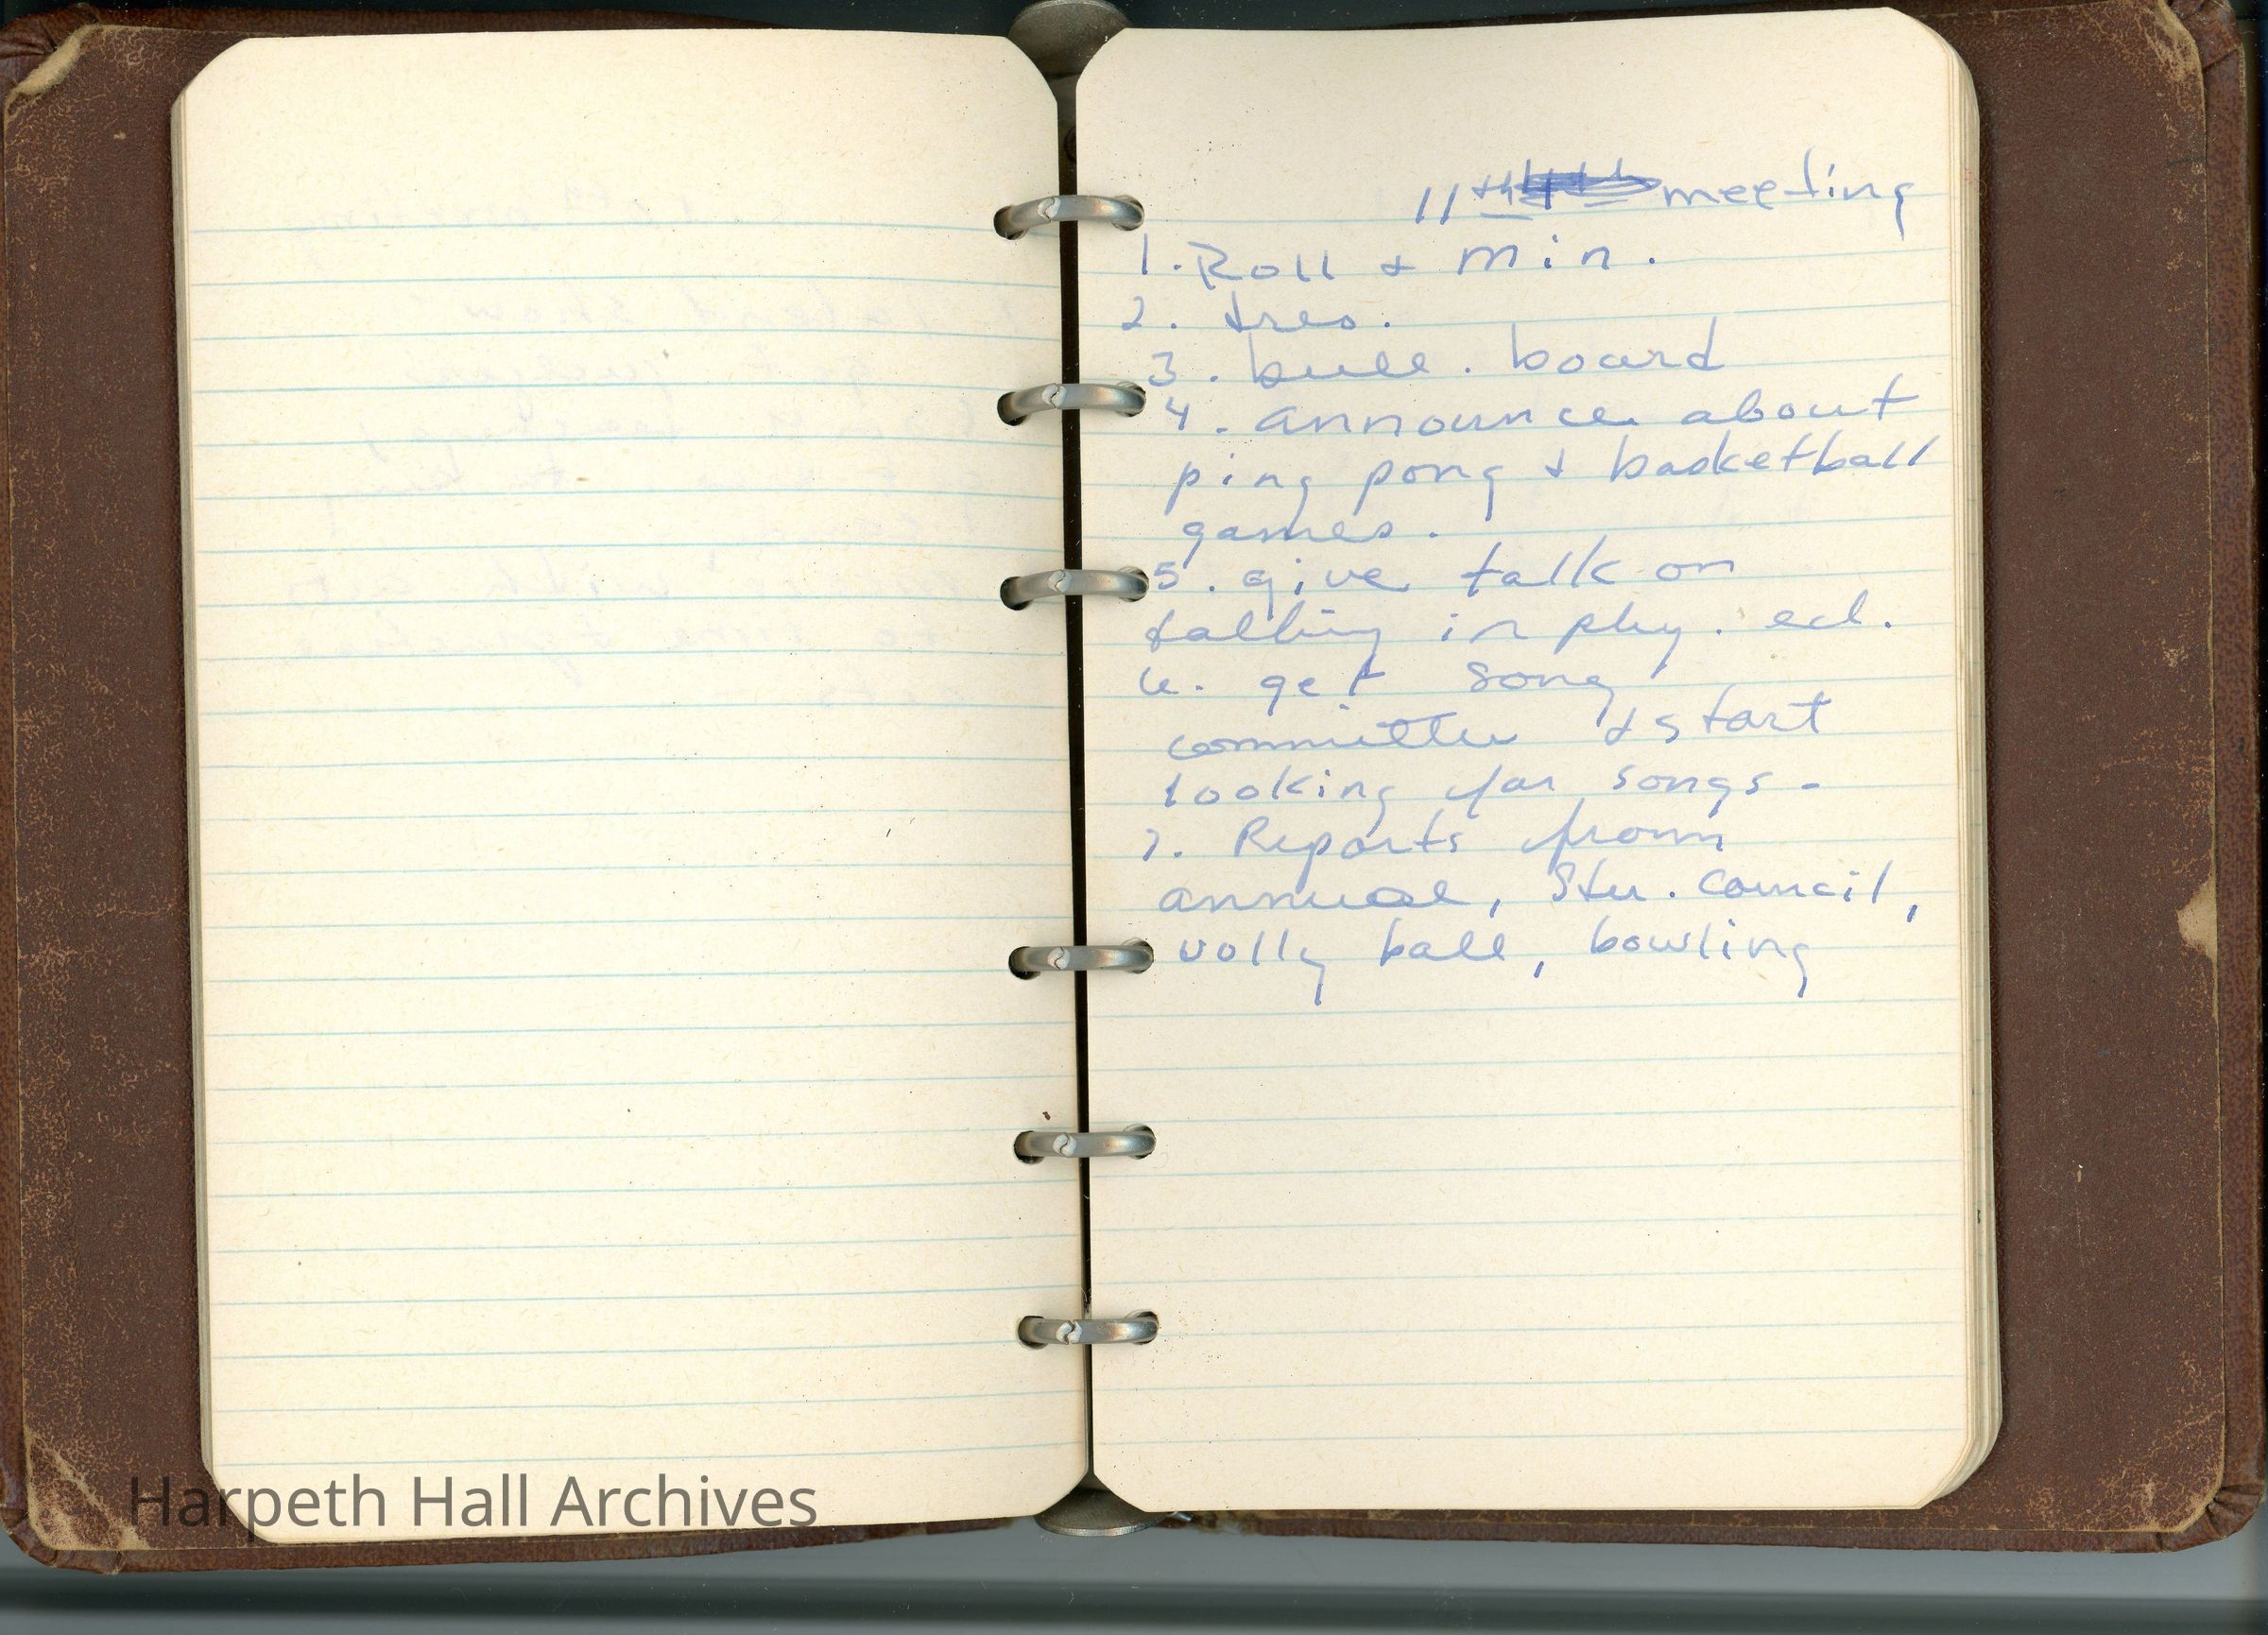 11th meeting
1. Roll & min.
2. tres.
3. bull. board
4. announce about
ping pong & basketball
games.
5. give talk on
talking in phy. ed.
6. get song
committee & start
looking for songs -
7. Reports from
annual, Stu. Council,
volly ball, bowling
Harpeth Hall Archives